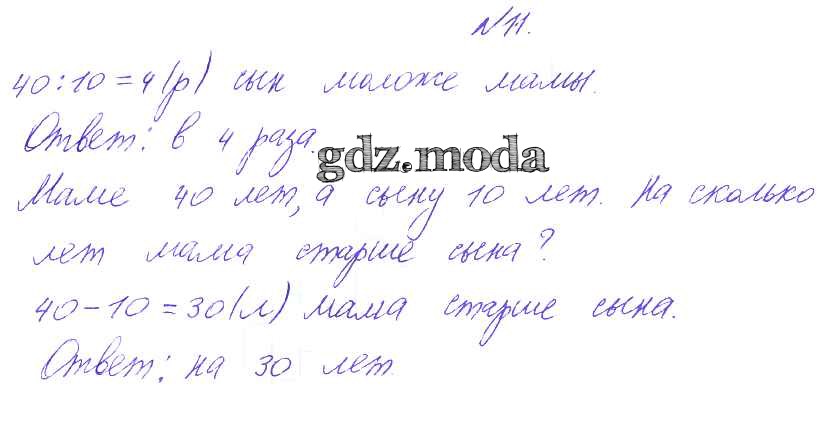 №11.
40:10=4(р) сын моложе мамы.
Ответ: в 4 раза.
gdz.moda
Маме 40 лет, а сыну 10 лет. На сколько
лет мама старше сына?
40-10=30(л) мама старше сына.
Ответ: на 30 лет.